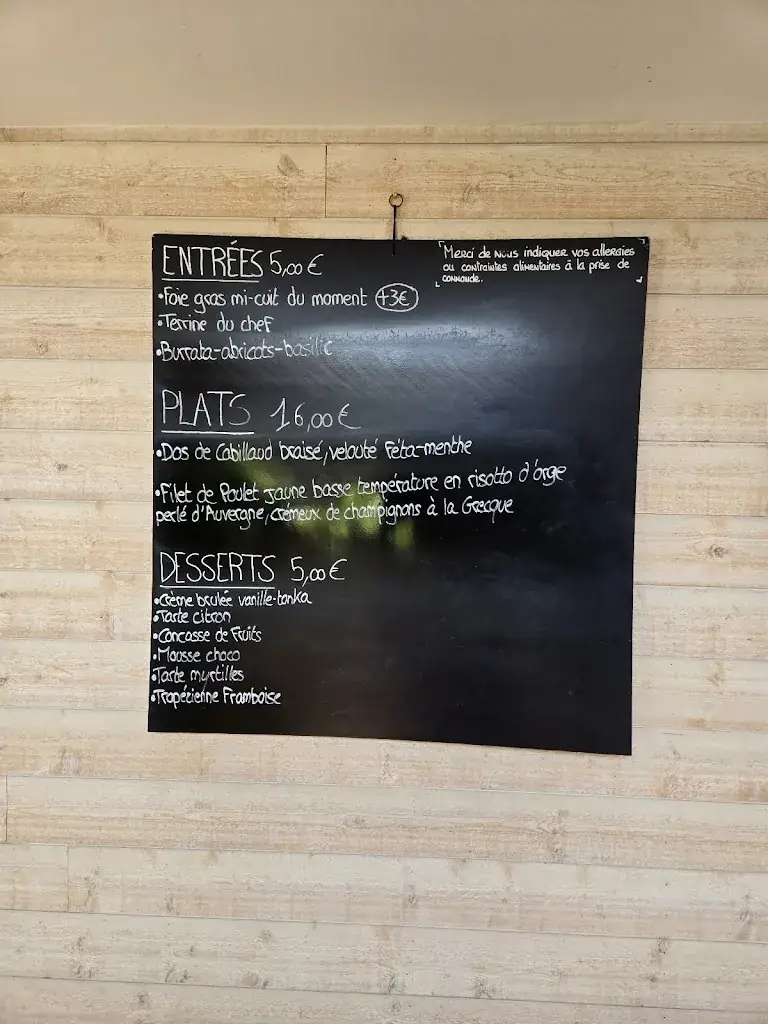 ENTRÉES 5,00 €
Merci de nous indiquer vos allergies
ou contraintes alimentaires à la prise de
commande.
•Foie gras mi-cuit du moment +3€
•Terrine du chef
•Burrata-abricots-basilic
PLATS 16,00 €
•Dos de Cabillaud braisé, velouté Féta-menthe
•Filet de Poulet jaune basse température en risotto d'orge
perlé d'Auvergne, crémeux de champignons à la Grecque
DESSERTS 5,00 €
•Crème brulée vanille-tonka
•Tarte citron
•Concasse de Fruits
•Mousse choco
•Tarte myrtilles
•Tropézienne Framboise